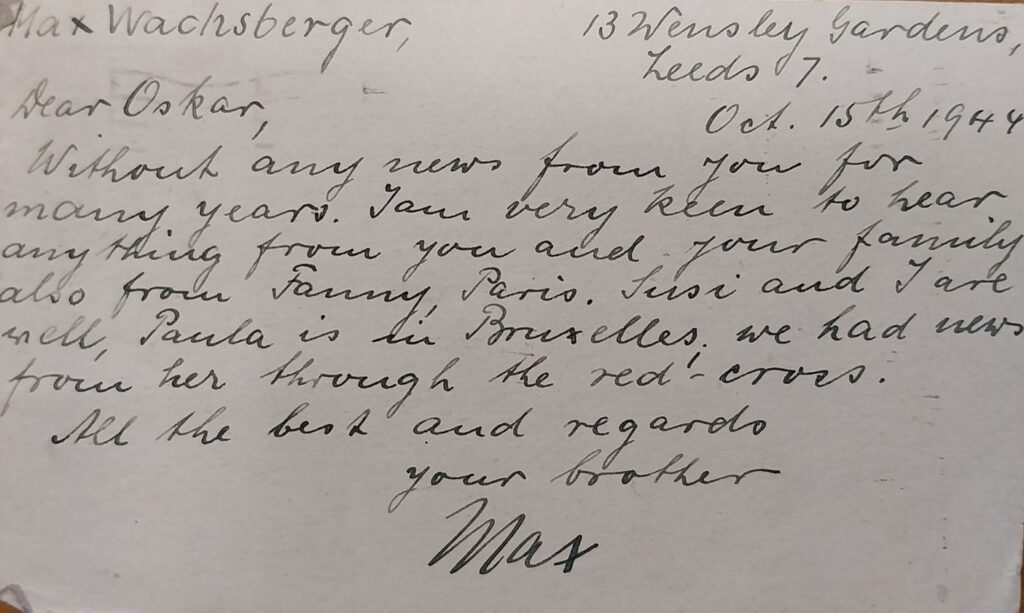 Max Wachsberger, 13 Wensley Gardens,
Leeds 7.
Dear Oskar,
Oct. 15th 1944
Without any news from you for
many years. I am very keen to hear
anything from you and your family
also from Fanny, Paris. Susi and I are
well, Paula is in Bruxelles, we had news
from her through the red-cross.
All the best and regards
your brother
Max